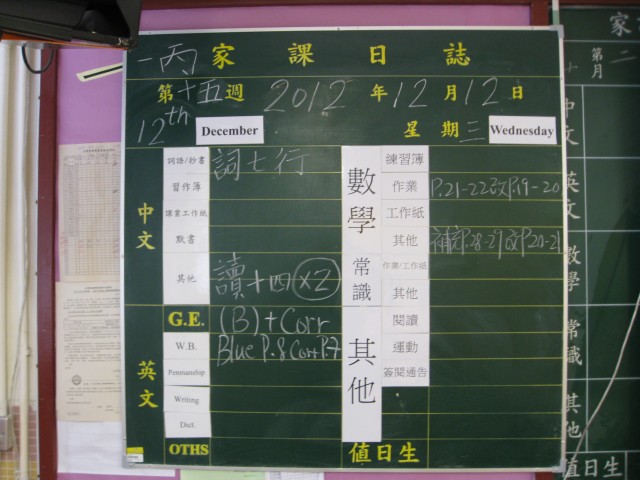 一丙 家課日誌
第十五週 2012年12月12日
12th December 星期三 Wednesday
中文
詞語/抄書 詞七行
習作簿
課業工作紙
默書
其他 讀十四 ×2
英文
G.E. (B)+Corr
W.B. Blue P.8 Corr P.7
Penmanship
Writing
Dict.
OTHS
數學
練習簿
作業 P.21-22改P.19-20
工作紙
其他 補充P.28-29改P.20-21
常識
作業/工作紙
其他
其他
閱讀
運動
簽閱通告
值日生
家
第 二
月
中文
英文
數學
常識
其他
值日生